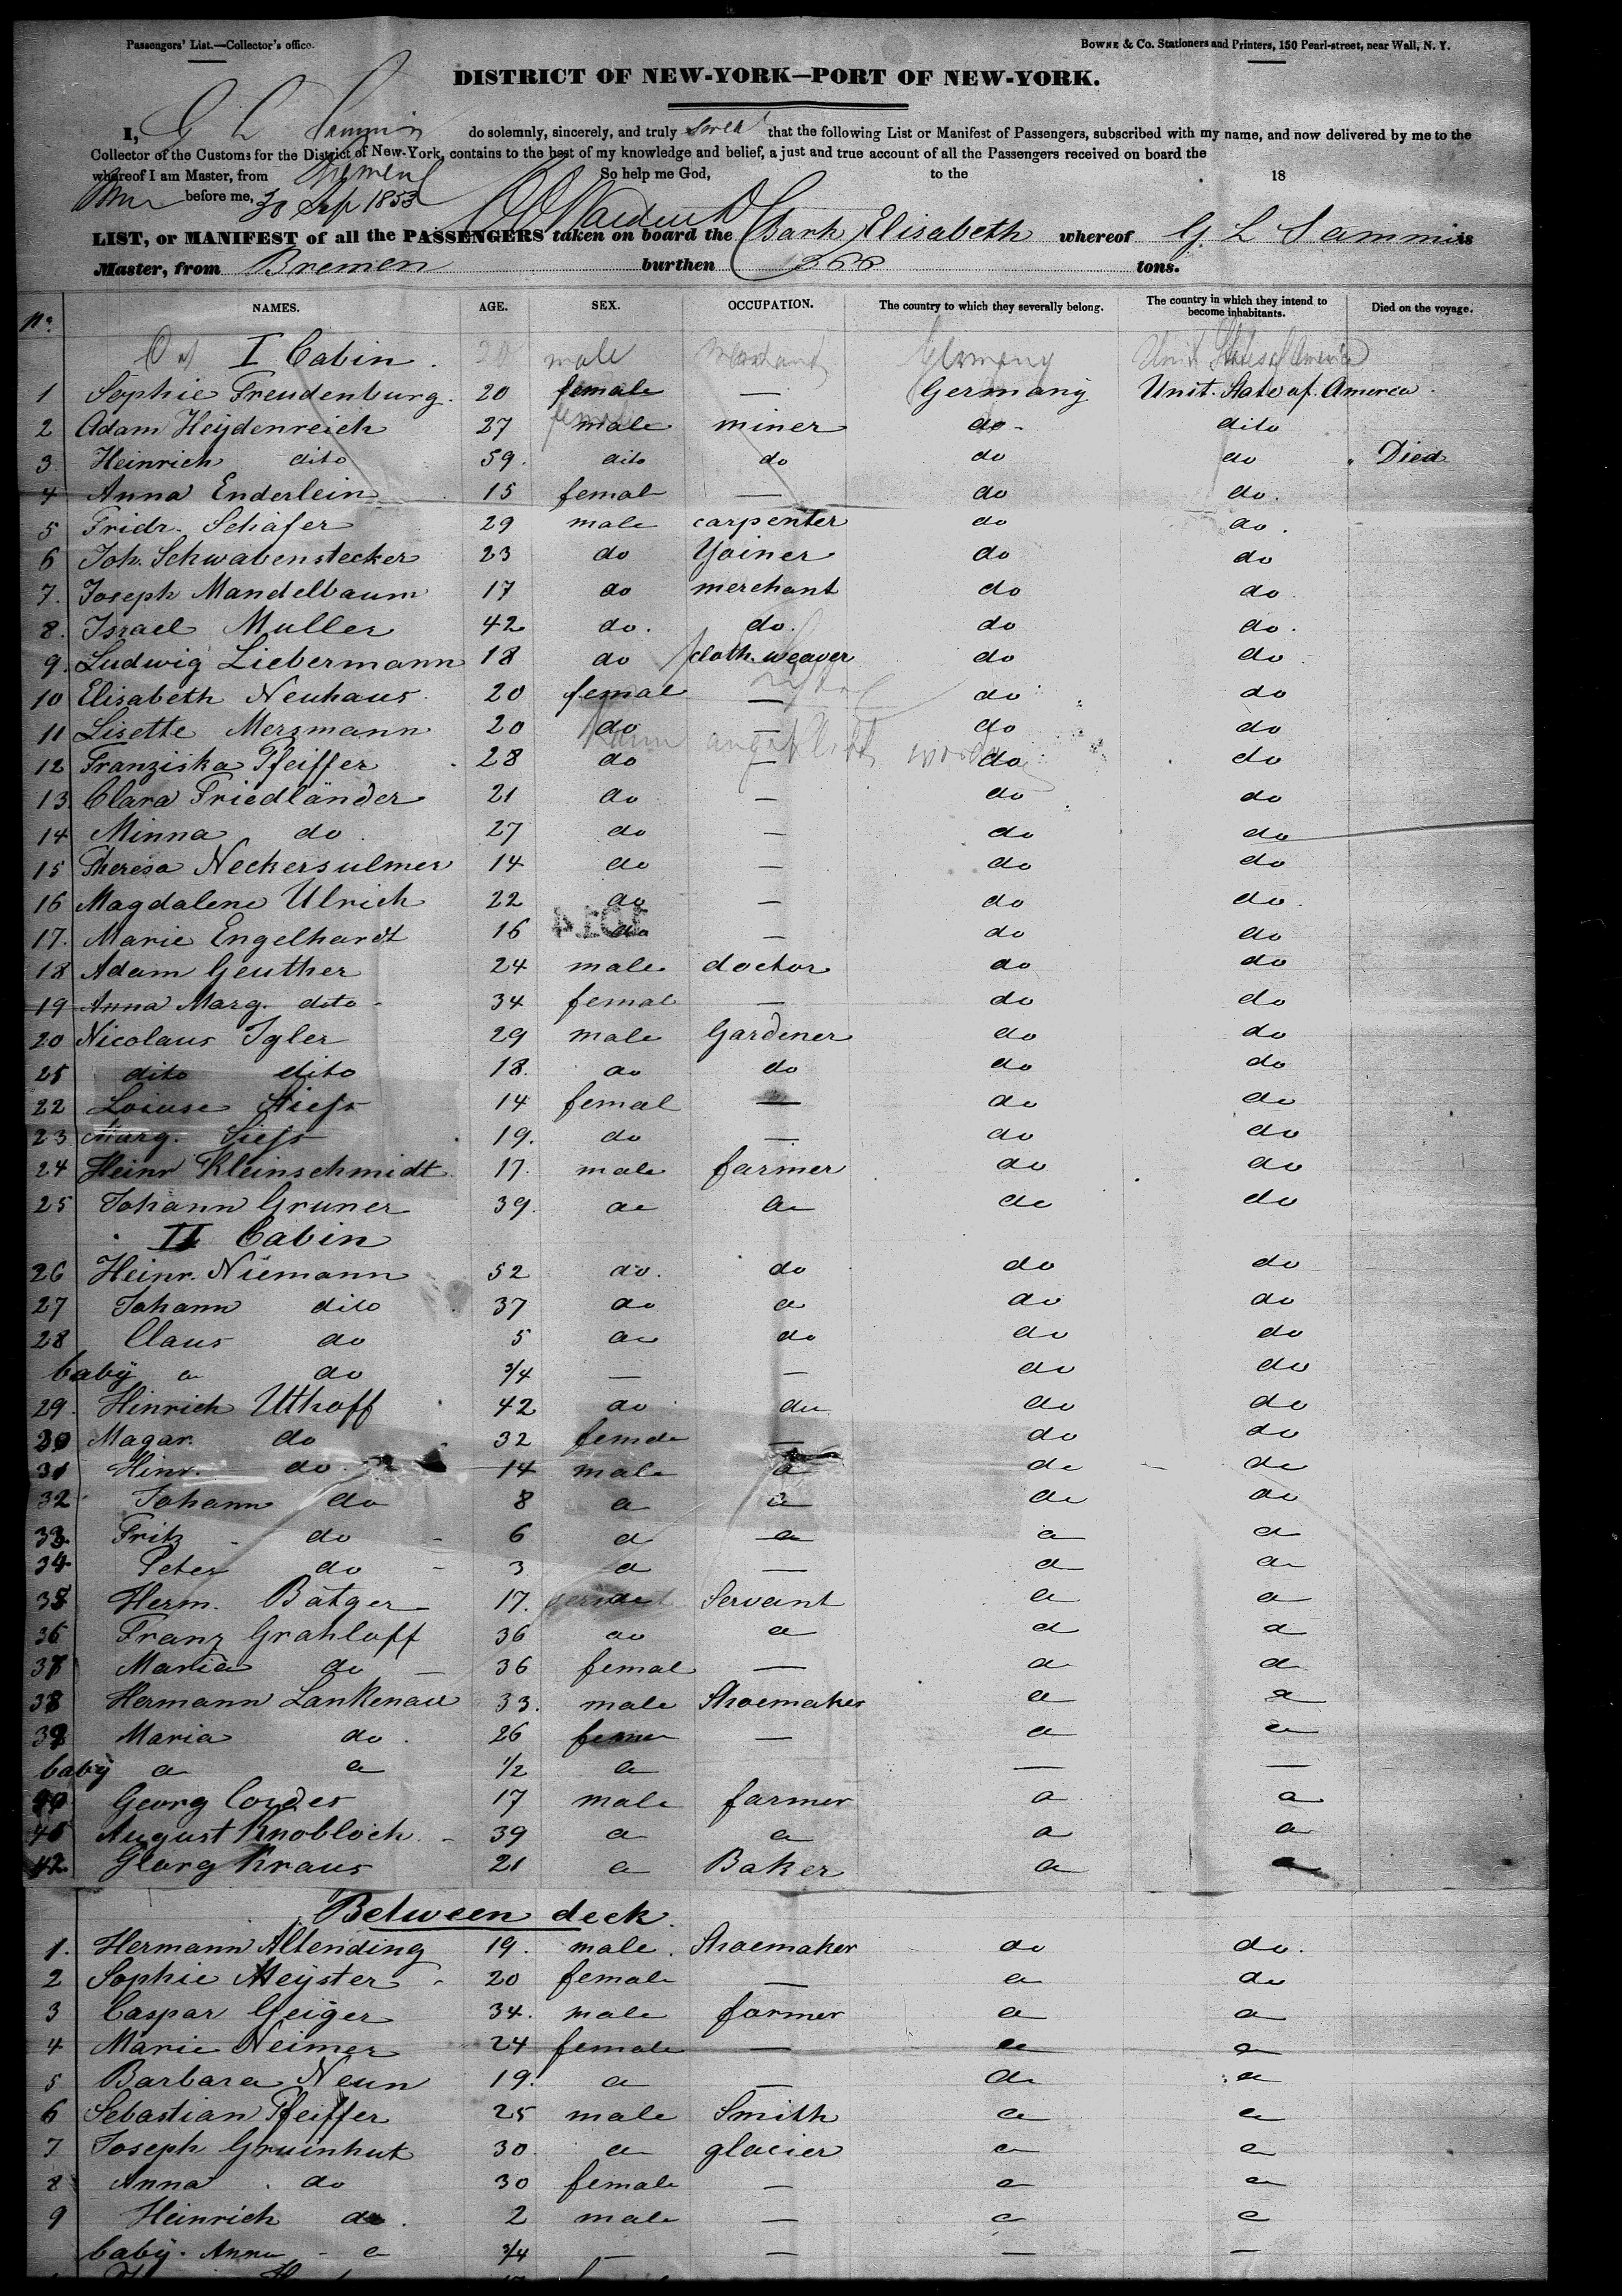 Passengers' List.—Collector's office.
Bowne & Co. Stationers and Printers, 150 Pearl-street, near Wall, N. Y.
DISTRICT OF NEW-YORK—PORT OF NEW-YORK.
I, G L Sammis do solemnly, sincerely, and truly that the following List or Manifest of Passengers, subscribed with my name, and now delivered by me to the
Collector of the Customs for the District of New-York, contains to the best of my knowledge and belief, a just and true account of all the Passengers received on board the
whereof I am Master, from Bremen So help me God, to the 18
before me, 30 Sep 1853
LIST, or MANIFEST of all the PASSENGERS taken on board the Bark Elisabeth whereof G. L Sammis is
Master, from Bremen burthen tons.
No. NAMES. AGE. SEX. OCCUPATION. The country to which they severally belong. The country in which they intend to become inhabitants. Died on the voyage.
I Cabin. 20 male Germany Unit States of America
1 Sophie Freudenburg. 20 female — Germany Unit. State of. America.
2 Adam Heÿdenreich 27 male miner do - dito
3 Heinrich dito 59. dito do do do Died
4 Anna Enderlein 15 femal — do do.
5 Fridr. Schäfer 29 male carpenter do do.
6 Joh. Schwabenstecker 23 do Yoiner do do
7. Joseph Mandelbaum 17 do merchant do do
8. Israel Muller 42 do. do. do do.
9. Ludwig Liebermann 18 do cloth. weaver do do
10 Elisabeth Neuhaus 20 femal — do do
11 Lisette Merzmann 20 do — do do
12 Franziska Pfeiffer 28 do — do do
13 Clara Friedländer 21 do — do do
14 Minna do 27 do — do do
15 Theresa Neckersulmer 14 do — do do
16 Magdalene Ulrich 22 do — do do.
17. Marie Engelhardt 16 do — do do
18 Adam Geuther 24 male doctor do do
19 Anna Marg. dito - 34 femal — do do
20 Nicolaus Igler 29 male Gardener do do
21 dito dito 18. do do do do
22 Loiuse 14 femal — do do
23 Marg. 19. do — do do
24 Heinr Kleinschmidt 17. male farmer do do
25 Johann Gruner 39. do do do do
II Cabin
26 Heinr. Niemann 52 do. do do do
27 Johann dito 37 do do do do
28 Claus do 5 do do do do
babÿ do do 3/4 — — do do
29. Hinrich Uthoff 42 do do do do
30 Magar. do 32 female — do do
31 Hinr. do 14 male do do do
32 Johann do 8 do do do do
33. Fritz do - 6 do do do do
34 Peter do - 3 do — do do
35 Herm. Bätger 17. Servant do do
36 Franz Grahloff 36 do do do do
37 Maria do — 36 femal — do do
38 Hermann Lankenau 33. male Shoemaker do do
39 Maria do. 26 — do do
babÿ do do 1/2 do — —
40 Georg Cordes 17 male farmer do do
41 August Knobloch - 39 do do do do
42 Georg Kraus 21 do Baker do do
Between deck.
1. Hermann Altending 19. male. Shoemaker do do.
2 Sophie Meÿster - 20 female — do do
3 Caspar Geiger 34. male farmer do do
4 Marie Neimer 24 female — do do
5 Barbara Neun 19. do — do do
6 Sebastian Pfeiffer 25 male Smith do do
7 Joseph Gruinhut 30. do glacier do do
8 Anna do 30 female — do do
9 Heinrich do. 2 male — do do
babÿ. Anna - do 3/4 — — — —